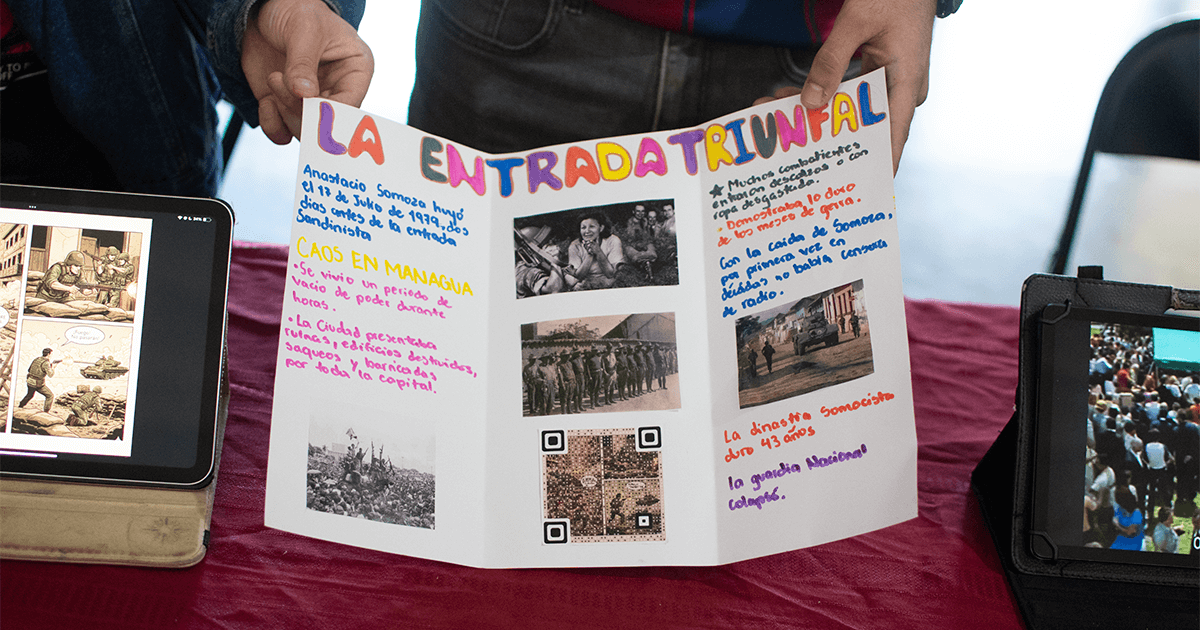 LA ENTRADA TRIUNFAL
Anastacio Somoza huyó
el 17 de Julio de 1979, dos
dias antes de la entrada
Sandinista
CAOS EN MANAGUA
• Se vivio un periodo de
vacio de poder durante
horas.
• La Ciudad presentaba
ruinas, edificios destruidos,
saqueos y barricadas
por toda la capital.
★ Muchos combatientes
entraron descalzos o con
ropa desgastada.
• Demostraba lo duro
de los meses de gerra.
Con la caida de Somoza,
por primera vez en
décadas no había censura
de radio.
La dinastia Somocista
duro 43 años
la guardia Nacional
colapsó.